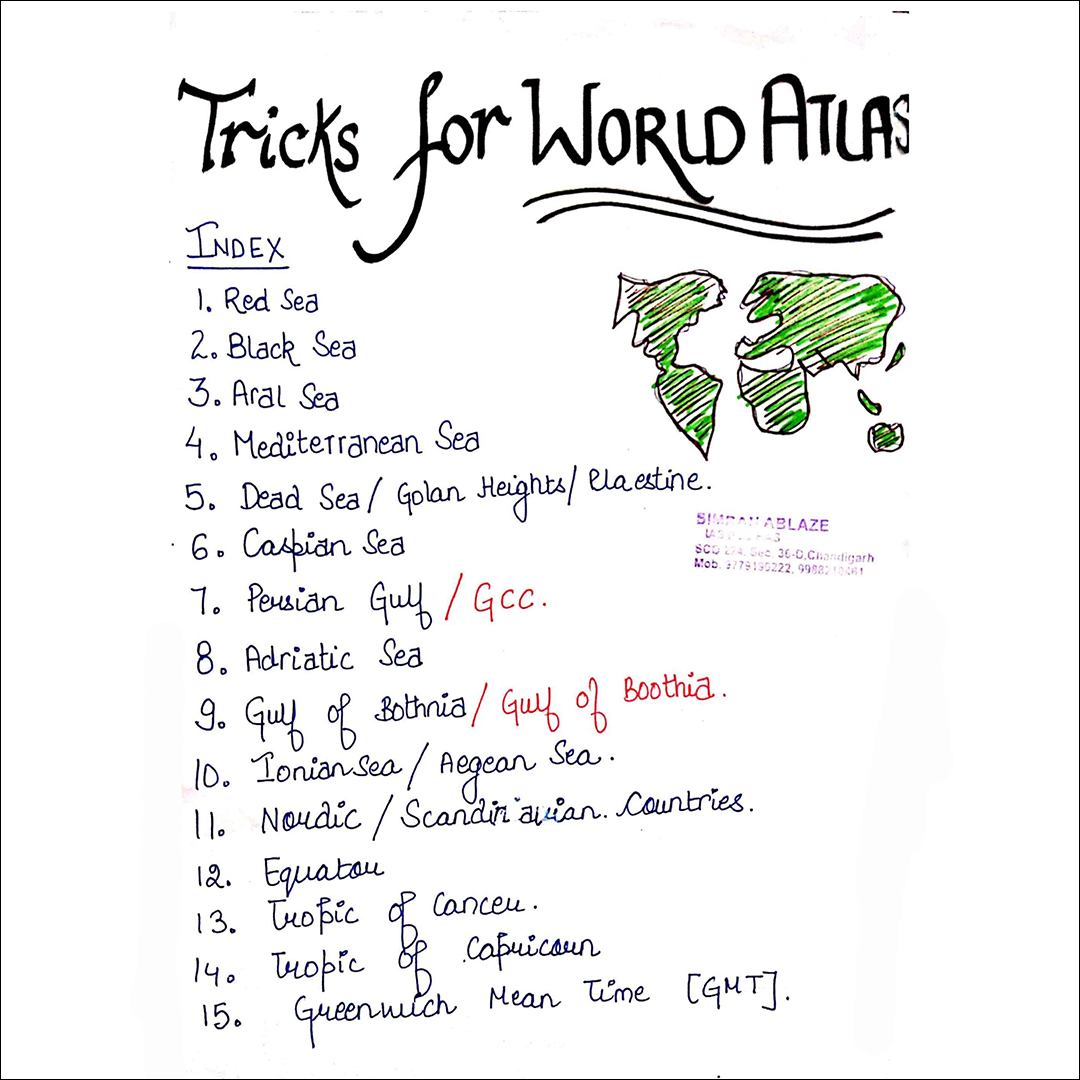 Tricks for WORLD ATLAS
INDEX
1. Red Sea
2. Black Sea
3. Aral Sea
4. Mediterranean Sea
5. Dead Sea / Golan Heights /
6. Caspian Sea
7. Persian Gulf / GCC.
8. Adriatic Sea
9. Gulf of Bothnia / Gulf of Boothia.
10. Ionian Sea / Aegean Sea.
11. Nordic / Scandinavian. Countries.
12. Equator
13. Tropic of Cancer.
14. Tropic of Capricorn
15. Greenwich Mean Time [GMT].
ABLAZE
SCO Sec. 36-D, Chandigarh
Mob.